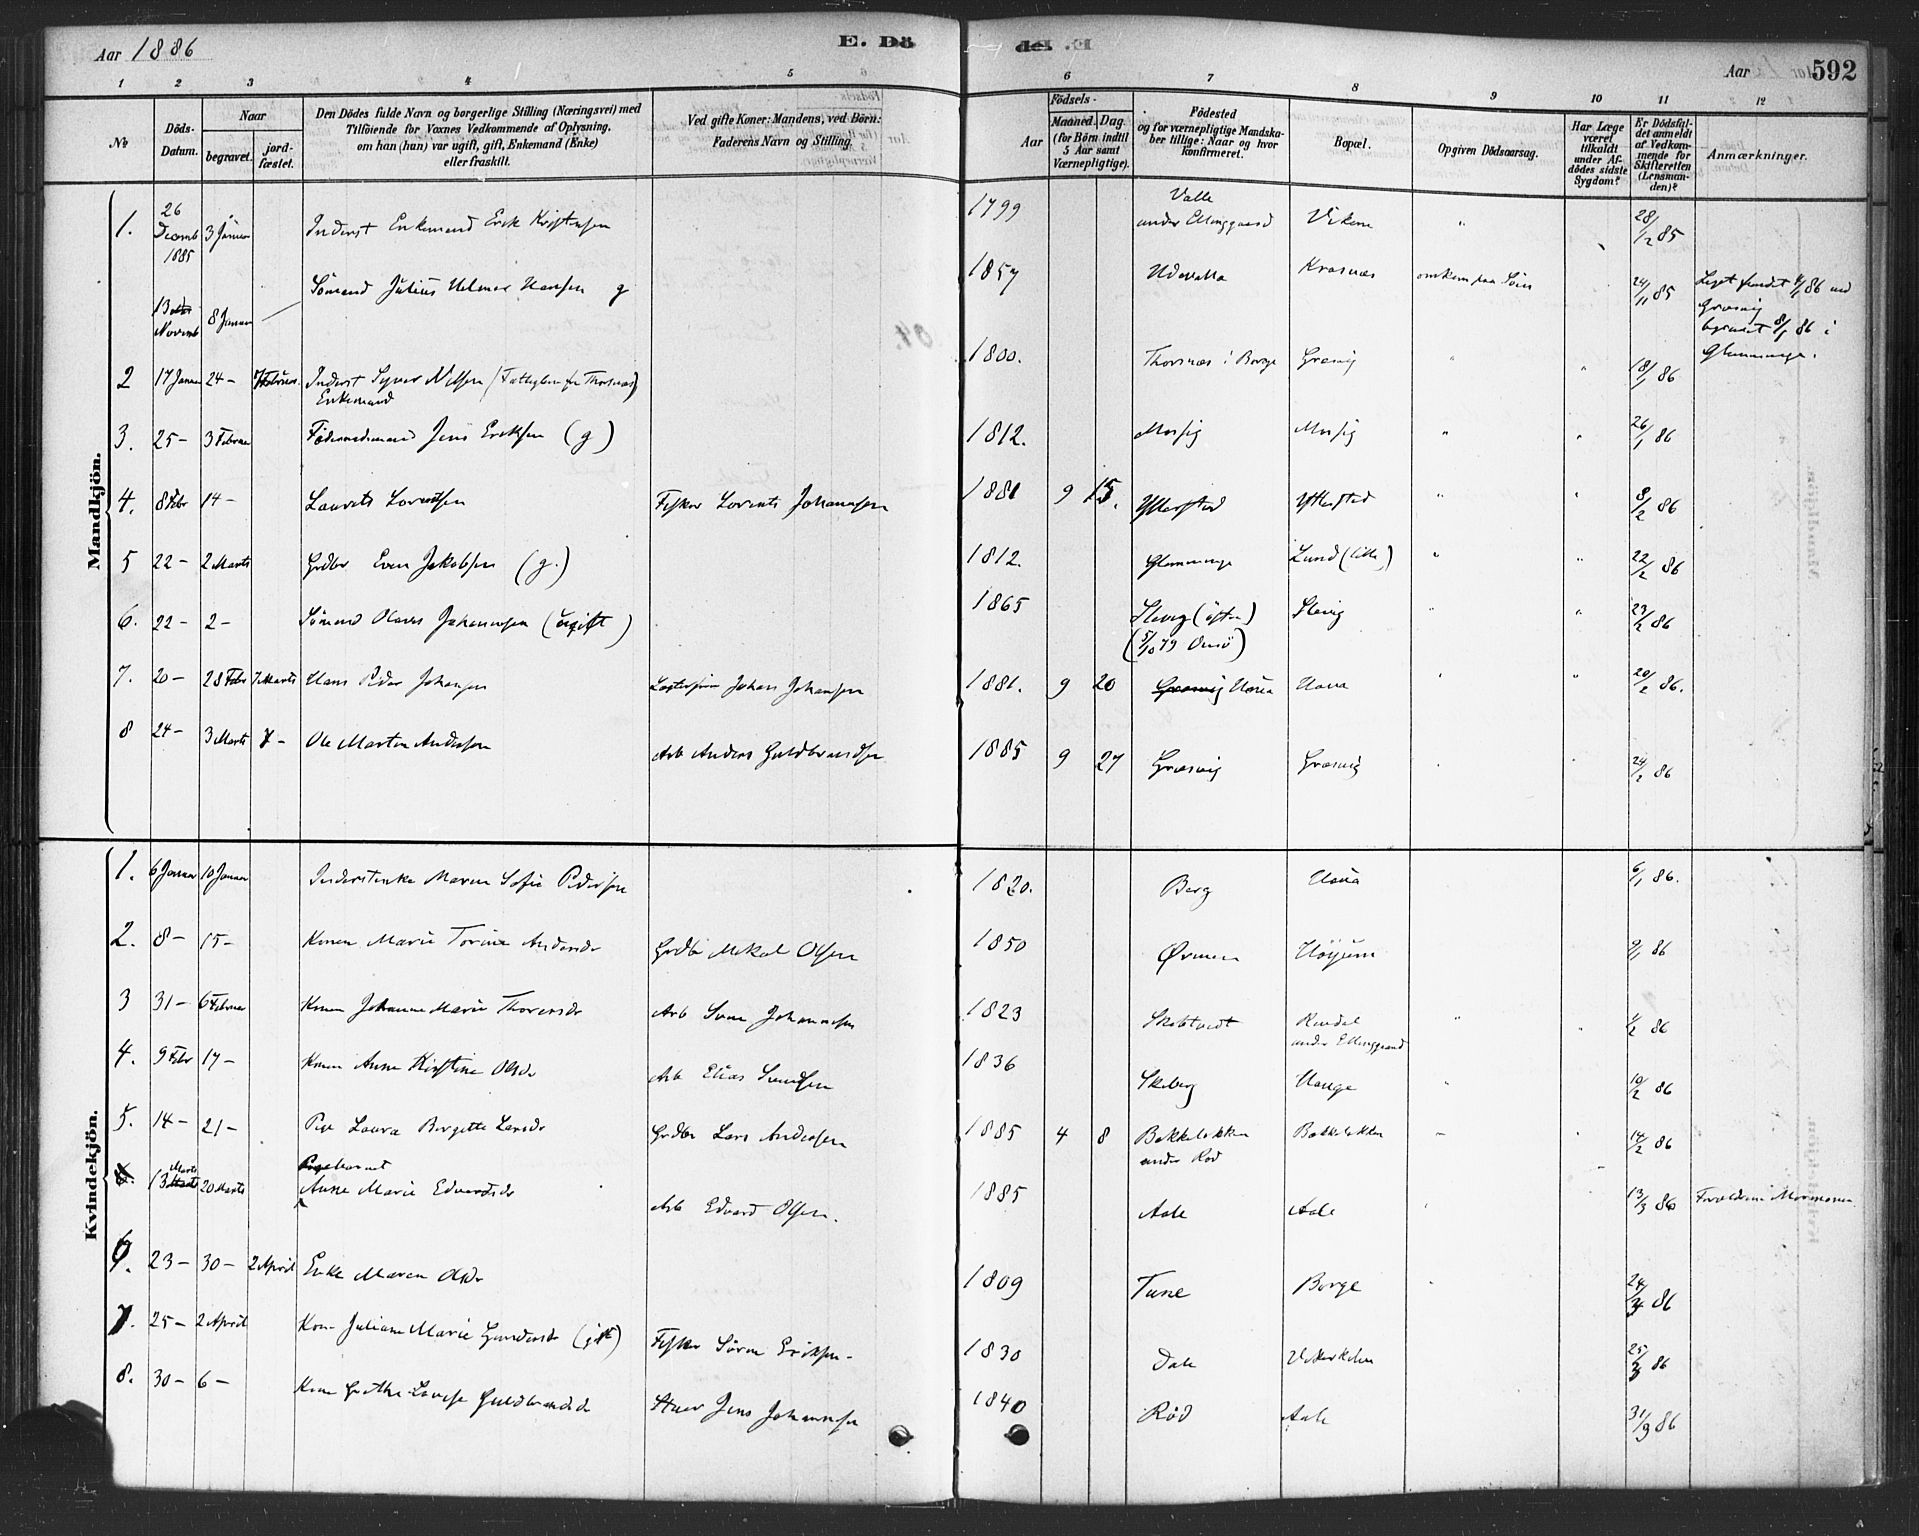 Aar 1886
E. Dö
de. E.
Aar
592
1 2 3 4 5 6 7 8 9 10 11 12
No
Döds-
Datum.
Naar
begravet.
jord-
fæstet.
Den Dödes fulde Navn og borgerlige Stilling (Næringsvei) med
Tilföiende for Voxnes Vedkommende af Oplysning,
om han (hun) var ugift, gift, Enkemand (Enke)
eller fraskilt.
Ved gifte Koner: Mandens, ved Börn:
Faderens Navn og Stilling.
Aar
Födsels-
Maaned. Dag.
(for Börn indtil
5 Aar samt
Værnepligtige).
Födested
og for værnepligtige Mandska-
ber tillige: Naar og hvor
konfirmeret.
Bopæl.
Opgiven Dödsaarsag.
Har Læge
været
tilkaldt
under Af-
dödes sidste
Sygdom?
Er Dödsfal-
det anmeldt
af Vedkom-
mende for
Skifteretten
(Lensman-
den)?
Anmærkninger.
Mandkjön.
1. 26 Decemb 1885 3 Januar Inderst Enkemand Erik Kristensen 1799 Valle under Elinggaard Vikene " 28/12 85
13 Novemb 8 Januar Sömand Julius Helmer Hansen g 1857 Udevalla Kraknæs omkom paa Söen 24/11 85 Liget fundet 4/1 86 ved
Græsvig
begravet 8/1 86 i
Glemminge.
2 17 Januar 24 - 7 Februar Inderst Syver Nilsen (Fattiglem fra Thorsnæs)
Enkemand 1800. Thorsnæs i Borge Græsvig " " 18/1 86
3. 25 - 3 Februar Födernedsmand Jens Eriksen (g) 1812. Mosvig Mosvig " " 26/1 86
4. 8 Febr 14 - Laurits Lorentsen Fisker Lorents Johannesen 1881 9 15. Ytterstad Ytterstad " " 8/2 86
5 22 - 2 Marts Grdbr Even Jakobsen (g.) 1812. Glemminge Lund (lille) " " 22/2 86
6. 22 - 2 - Sömand Olaves Johannesen (ugift) 1865 Slevig (östre)
(5/10 79 Onsö) Slevig " " 23/2 86
7. 20 - 28 Febr 7 Marts Hans Peder Johansen Johan Johansen 1881. 9 20 Græsvig Hauia Hauia " 20/2 86.
8 24 - 3 Marts 7 - Ole Martin Andersen Arb Anders Guldbrandsen 1885 9 27 Græsvig Græsvig 24/2 86
Kvindekjön.
1. 6 Januar 10 Januar Inderstenke Maren Sofie Pedersen 1820. Berg Hauia 6/1 86.
2. 8 - 15 - Konen Marie Torine Andersdr Grdbr Mikal Olsen 1850 Ørmen Höyum 9/1 86
3 31 - 6 Februar Konen Johanne Marie Thorersdr Arb Svene Johannesen 1823 Skobtvedt Rendal
under Elinggaard " 1/2 86
4. 9 Febr 17 - Konen Anne Kirstine Olsdr Arb Elias Svendsen 1836 Skiberg Hauge " 10/2 86
5. 14 - 21 - Pige Laura Birgitte Larsdr Grdbr Lars Andersen 1885 4 8 Bakkeløkken
under Rød Bakkeløkken - 14/2 86
13 Marts 20 Marts Pigebarnet
Anne Marie Edvardsdr Arb Edvard Olsen. 1885 Aale Aale 13/3 86 Forældrene Mormoner
6. 23 - 30 - 2 April Enke Maren Olsdr 1809 Tune Borge 24/3 86
7. 25 - 2 April Kone Juliane Marie Gundersdr (gift) Fisker Sören Eriksen - 1830 Dale 25/3 86
8. 30 - 6 - Kone Grethe Lovise Guldbrandsdr Jens Johannesen 1840 Rød Aale 31/3 86